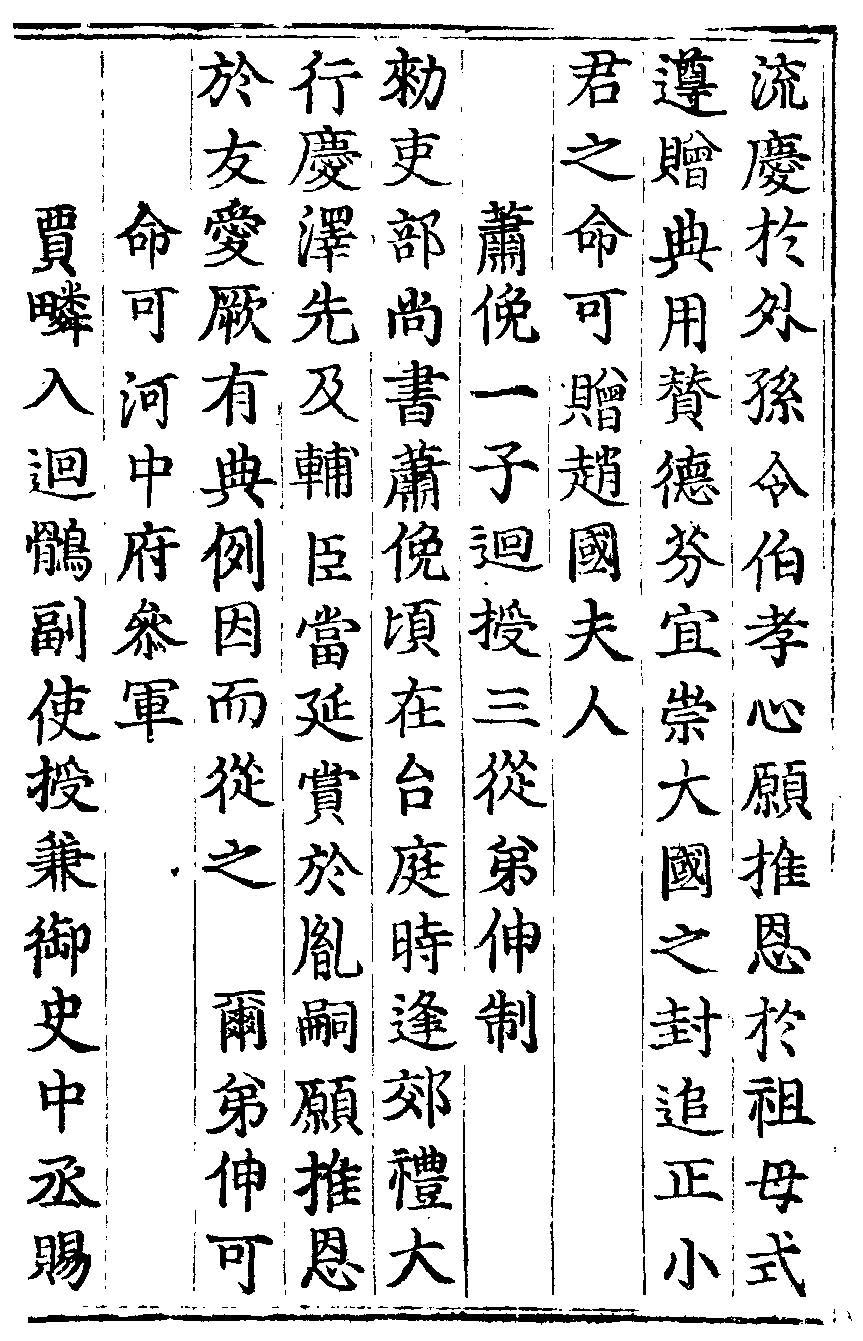 流慶於外孫令伯孝心願推恩於祖母式
遵贈典用賛德芬宜崇大國之封追正小
君之命可贈趙國夫人
蕭俛一子迴授三從弟伸制
勑吏部尚書蕭俛頃在台庭時逢郊禮大
行慶澤先及輔臣當延賞於胤嗣願推恩
於友愛厥有典例因而從之　爾弟伸可
命可河中府叅軍
賈疄入迴鶻副使授兼御史中丞賜